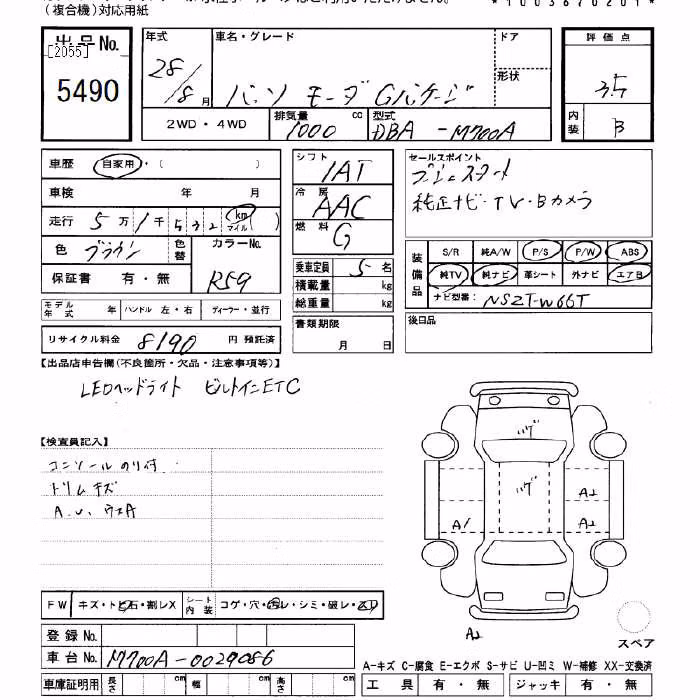 （複合機）対応用紙
*1003670201*
出品No.
[2055]
5490
年式 28/8月
車名・グレード パッソ モーダ Gパケージ
ドア
形状
2WD・4WD
排気量 1000 cc
型式 DBA-M700A
評価点 3.5
内装 B
車歴 自家用・（ ）
車検 年 月
走行 5万1千532 km マイル（ ）
色 ブラウン
色替
カラーNo. R59
保証書 有・無
シフト IAT
冷房 AAC
燃料 G
乗車定員 5名
積載量 kg
総重量 kg
書類期限
月 日
セールスポイント
プッシュスタート
純正ナビ・TV・Bカメラ
装備品
S/R 純A/W P/S P/W ABS
純TV 純ナビ 革シート 外ナビ エアB
ナビ型番： NSZT-W66T
後日品
モデル年式 年 ハンドル 左・右 ディーラー・並行
リサイクル料金 8190 円 預託済
【出品店申告欄（不良箇所・欠品・注意事項等）】
LEDヘッドライト ビルトインETC
【検査員記入】
コンソールのり付
トリムキズ
A.U. ウスA
ハゲ
ハゲ
A2
A1
A2
A2
スペア
FW キズ・トビ石・割レX
シート内装 コゲ・穴・汚レ・シミ・破レ・スリ
登録No.
車台No. M700A-0029086
車庫証明用 長さ cm 幅 cm 高さ cm
A-キズ C-腐食 E-エクボ S-サビ U-凹ミ W-補修 XX-交換済
工具 有・無 ジャッキ 有・無